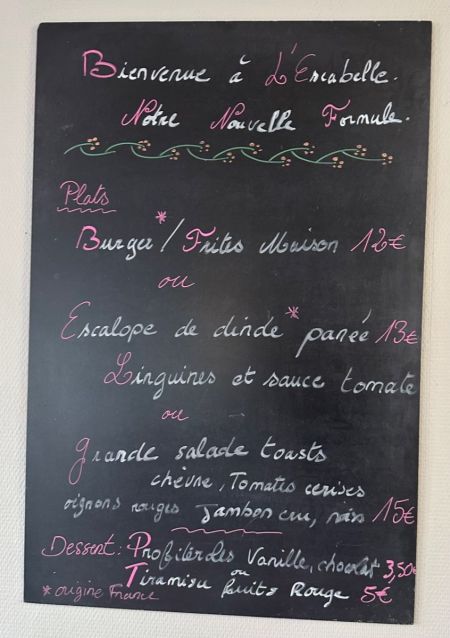 Bienvenue à L'Escabelle.
Notre Nouvelle Formule.
Plats
Burger* / Frites Maison 12€
ou
Escalope de dinde* panée 13€
Linguines et sauce tomate
ou
Grande salade toasts
chèvre, Tomates cerises
oignons rouges Jambon cru, noix 15€
Dessert: Profiteroles Vanille, chocolat 3,50€
ou
Tiramisu fruits Rouge 5€
* origine France